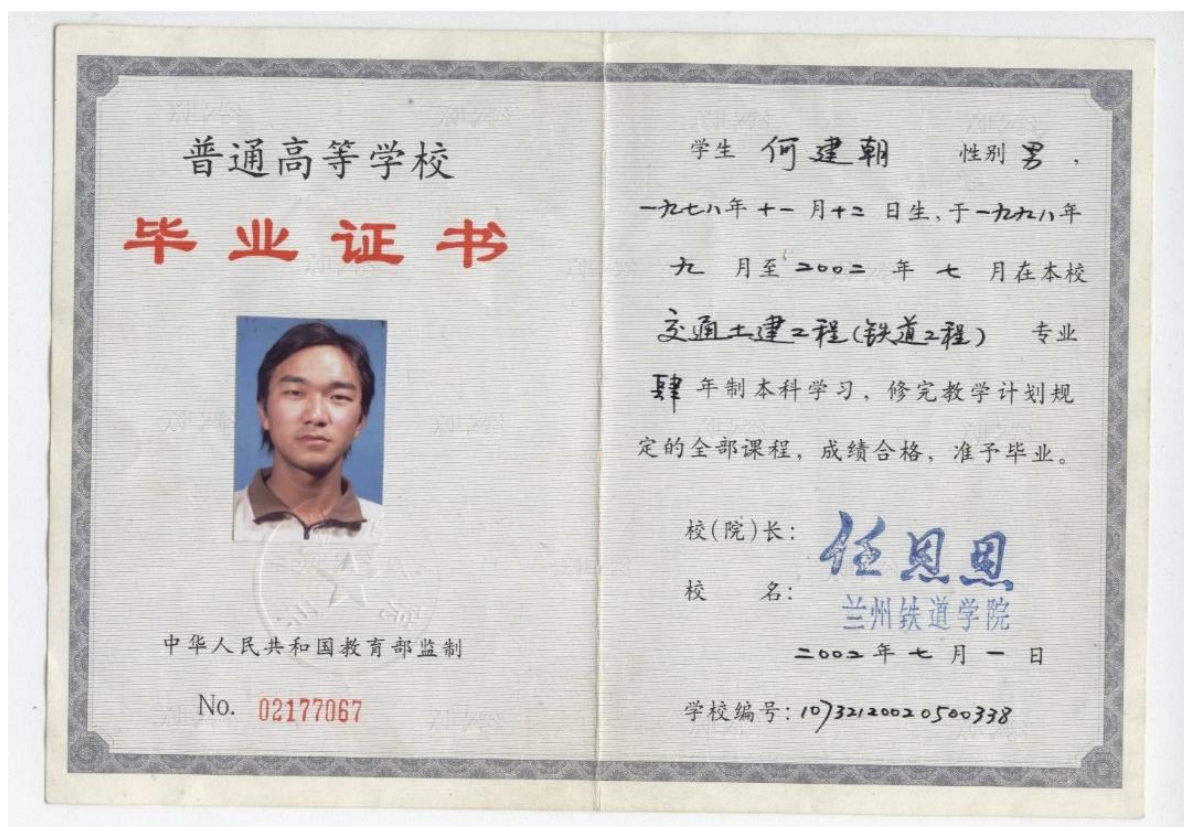 普通高等学校
毕业证书
中华人民共和国教育部监制
No. 02177067
学生 何建朝 性别 男，
一九七八年十一月十二日生，于一九九八年
九月至二〇〇二年七月在本校
交通土建工程(铁道工程) 专业
肆年制本科学习，修完教学计划规
定的全部课程，成绩合格，准予毕业。
校(院)长：任恩恩
校名：兰州铁道学院
二〇〇二年七月一日
学校编号：10732120020500338